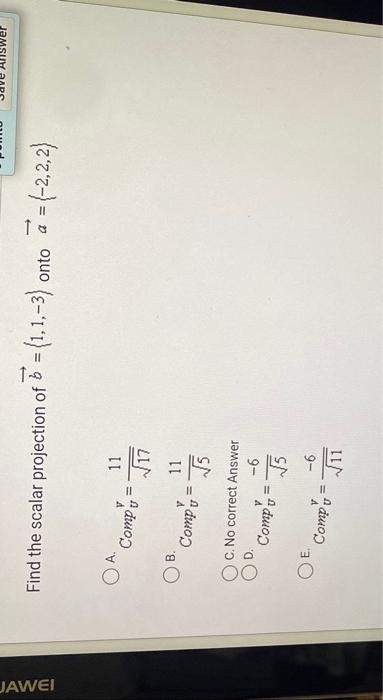 Save Answer
Find the scalar projection of →b = {1,1,−3} onto →a = {−2,2,2}
A. Comp^v_u = 11/√17
B. Comp^v_u = 11/√5
C. No correct Answer
D. Comp^v_u = −6/√5
E. Comp^v_u = −6/√11